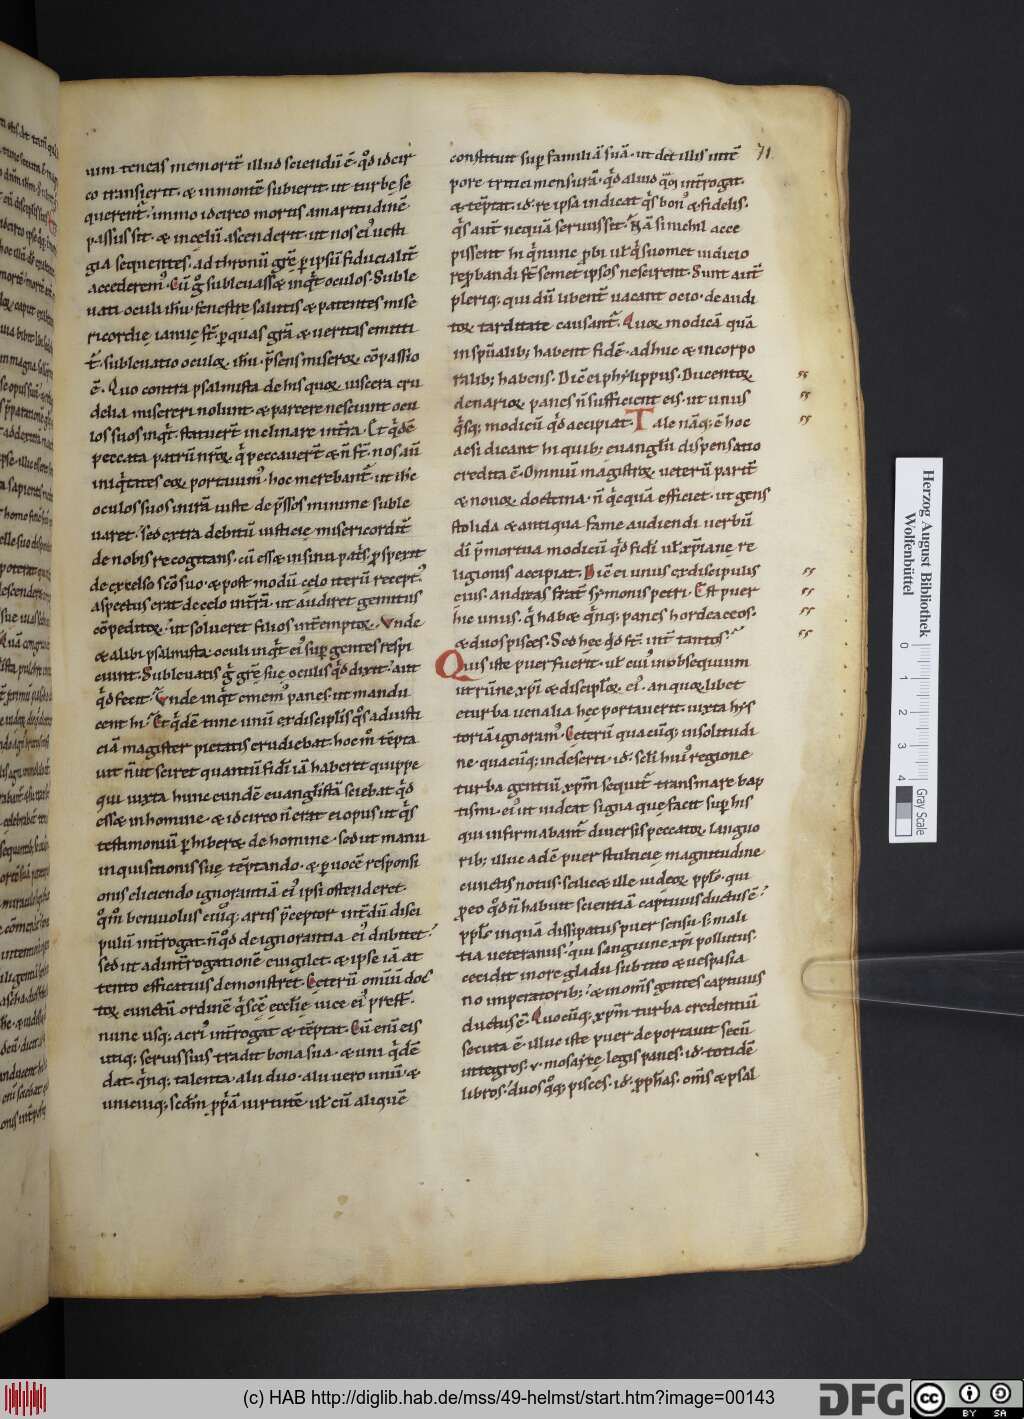 uim teneas memorit̄ illud sciendū ē. qd̓ idcir
co transierit. & in montē subierit. ut turbę se
querent̄. immo idcirco mortis amaritudinē
passus sit. & in celū ascenderit. ut nos ei᾽ uesti
gia sequentes. ad thronū grę p ipsū fiducialit̄
accederem᾽. Cū g̊ subleuass& inq̄t oculos. Suble
uati oculi ih̄u. fenestrę salutis & patentes mise
ricordię ianuę st̄. p quas grā & ueritas emitti
t̄. subleuatio oculoꝝ ih̄u. p̄sens miseroꝝ cōpassio
ē. Quo contra psalmista de his quoꝝ uiscera cru
delia misereri nolunt. & parcere nesciunt ocu
los suos inq̄t. statuert̄ inclinare int̄ra. Et q̓dē
peccata patrū nr̄oꝝ. q̓ peccauert̄ & ñ st̄. nos aū
iniq̓tates eoꝝ portauim᾽. hoc merebant̄. ut ih̄c
oculos suos in tr̄a iuste de p̄ssos minime suble
uaret. sed extra debitū iusticię misericordit̄
de nobis recogitans. cū ess& in sinu p̄at̄s. p̄spexit
de excelso scō suo. & post modū celo iterū recept᾽.
aspectus erat de celo in t̄rā. ut audiret gemitus
cōpeditoꝝ. ut solueret filios int̄emptoꝝ. Vnde
& alibi psalmista. oculi inq̄t ei᾽ sup gentes respi
ciunt. Subleuatis g̊ grę suę oculis q̓d dixit? aut
q̓d fecit? Vnde inq̄t emem᾽ panes. ut mandu
cent hi? Et q̓dē tunc unū ex discipl̄is q᷒s adiusti
ciā magister pietatis erudiebat. hoc m̊ tēpta
uit n̄ ut sciret quantū fidī iā haberet quippe
qui iuxta hunc eundē euangl̄istā sciebat q̓d
ess& in homine. & idcirco n̄ erat ei opus ut q̓s
testimoniū p hiber& de homine. sed ut manu
inquisitionis suę tēptando. & p uocē responsi
onis eliciendo ignorantiā ei᾽ ipsi ostenderet.
qm̊m beniuolus cui᾽q; artis p̄ceptor int̄dū disci
pulū int̄rogat. n̄ qd̊ de ignorantia ei᾽ dubitet?
sed ut ad int̄rogationē euigilet. & ipse iā at
tento efficatius demonstret. Ceterū omīū doc
toꝝ cunctū ordinē q᷒sc̄ę eccl̄ię uice ei᾽ prest̄.
nunc usq; acri᾽ int̄rogat & tēptat. Cū enī eis
utiq; seruis suis tradit bona sua. & uni q̓dē
dat q̓nq; talenta. alii duo. alii uero unū. &
unicuiq; scd̄m ppā uirtutē ul̄ cū aliquē
71.
constituit sup familiā suā. ut det illis in tē
pore tritici mensurā. q̓d aliud q̄m int̄rogat.
& tēptat. id; re ipsa indicat q̓s bon᾽ & fidelis.
q̓s aut̄ nequā seruus sit? Nā si nichil acce
pissent hi q̓ nunc probi ul̄ q̓ suomet iudicio
reprobandi st̄. semet ipsos nescirent. Sunt aut̄
pleriq; qui dū libent̄ uacant ocio. de audi
toꝝ tarditate causant̄. Quoꝝ modicā quā
in spūalib; habent fidē. adhuc & incorpo
ralib; habens. Dic̄ ei phylippus. Ducentoꝝ
denarioꝝ panes n̄ sufficient eis. ut unus
q̓sq; modicū q̓d accipiat. Tale nāq; ē hoc
ac si dicant hi quib; euanglīi dispensatio
credita ē. Omniū magistroꝝ ueterū parit̄
& nouoꝝ doctrina. n̄ q̓cquā efficiet. ut gens
stolida & antiqua fame audiendi uerbū
dī p̄mortua modicū q̓d fidī ul̄ xp̄ianę re
ligionis accipiat. Dic̄ ei unus ex discipulis
eius. andreas frat̄ symonis petri. Est puer
hic unus. q̓ hab& q̓nq; panes hordeaceos.
& duos pisces. Sed hęc q̓d st̄ int̄ tantos?
Quis iste puer fuerit. ul̄ cui᾽ in obsequium
utrūne xp̄i & discipl̄oꝝ ei᾽. an quoꝝ libet
e turba uenalia hęc portauerit. iuxta hys
toriā ignoram᾽. Ceterū quacūq; in solitudi
ne. quacūq; in deserti. id. scl̄i hui᾽ regione
turba gentiū xp̄m sequit̄ transmare bap
tismi. ei᾽ ut uideat signa que facit sup his
qui infirmabant̄ diuersis peccatoꝝ languo
rib; illuc adē puer stulticię magnitudine
cunctis notus. scilic& ille iudeoꝝ ppl̄s. qui
p eo qd̓ n̄ habuit scientiā captiuus ductus ē?
ppl̄s inquā dissipatus puer sensu. s; mali
tia ueteranus. qui sanguine xp̄i pollutus.
cecidit in ore gladii sub tito & uespasia
no imperatorib; & in om̄s gentes captiuus
ductus ē. Quocūq; xp̄m turba credentiū
secuta ē. illuc iste puer de portauit secū
integros. v. mosaycę legis panes. id. totidē
libros. duos q̊q; pisces. id. pph̄as. om̄s & psal
Herzog August Bibliothek
Wolfenbüttel
0 1 2 3 4
Gray Scale
(c) HAB http://diglib.hab.de/mss/49-helmst/start.htm?image=00143
DFG
cc BY SA